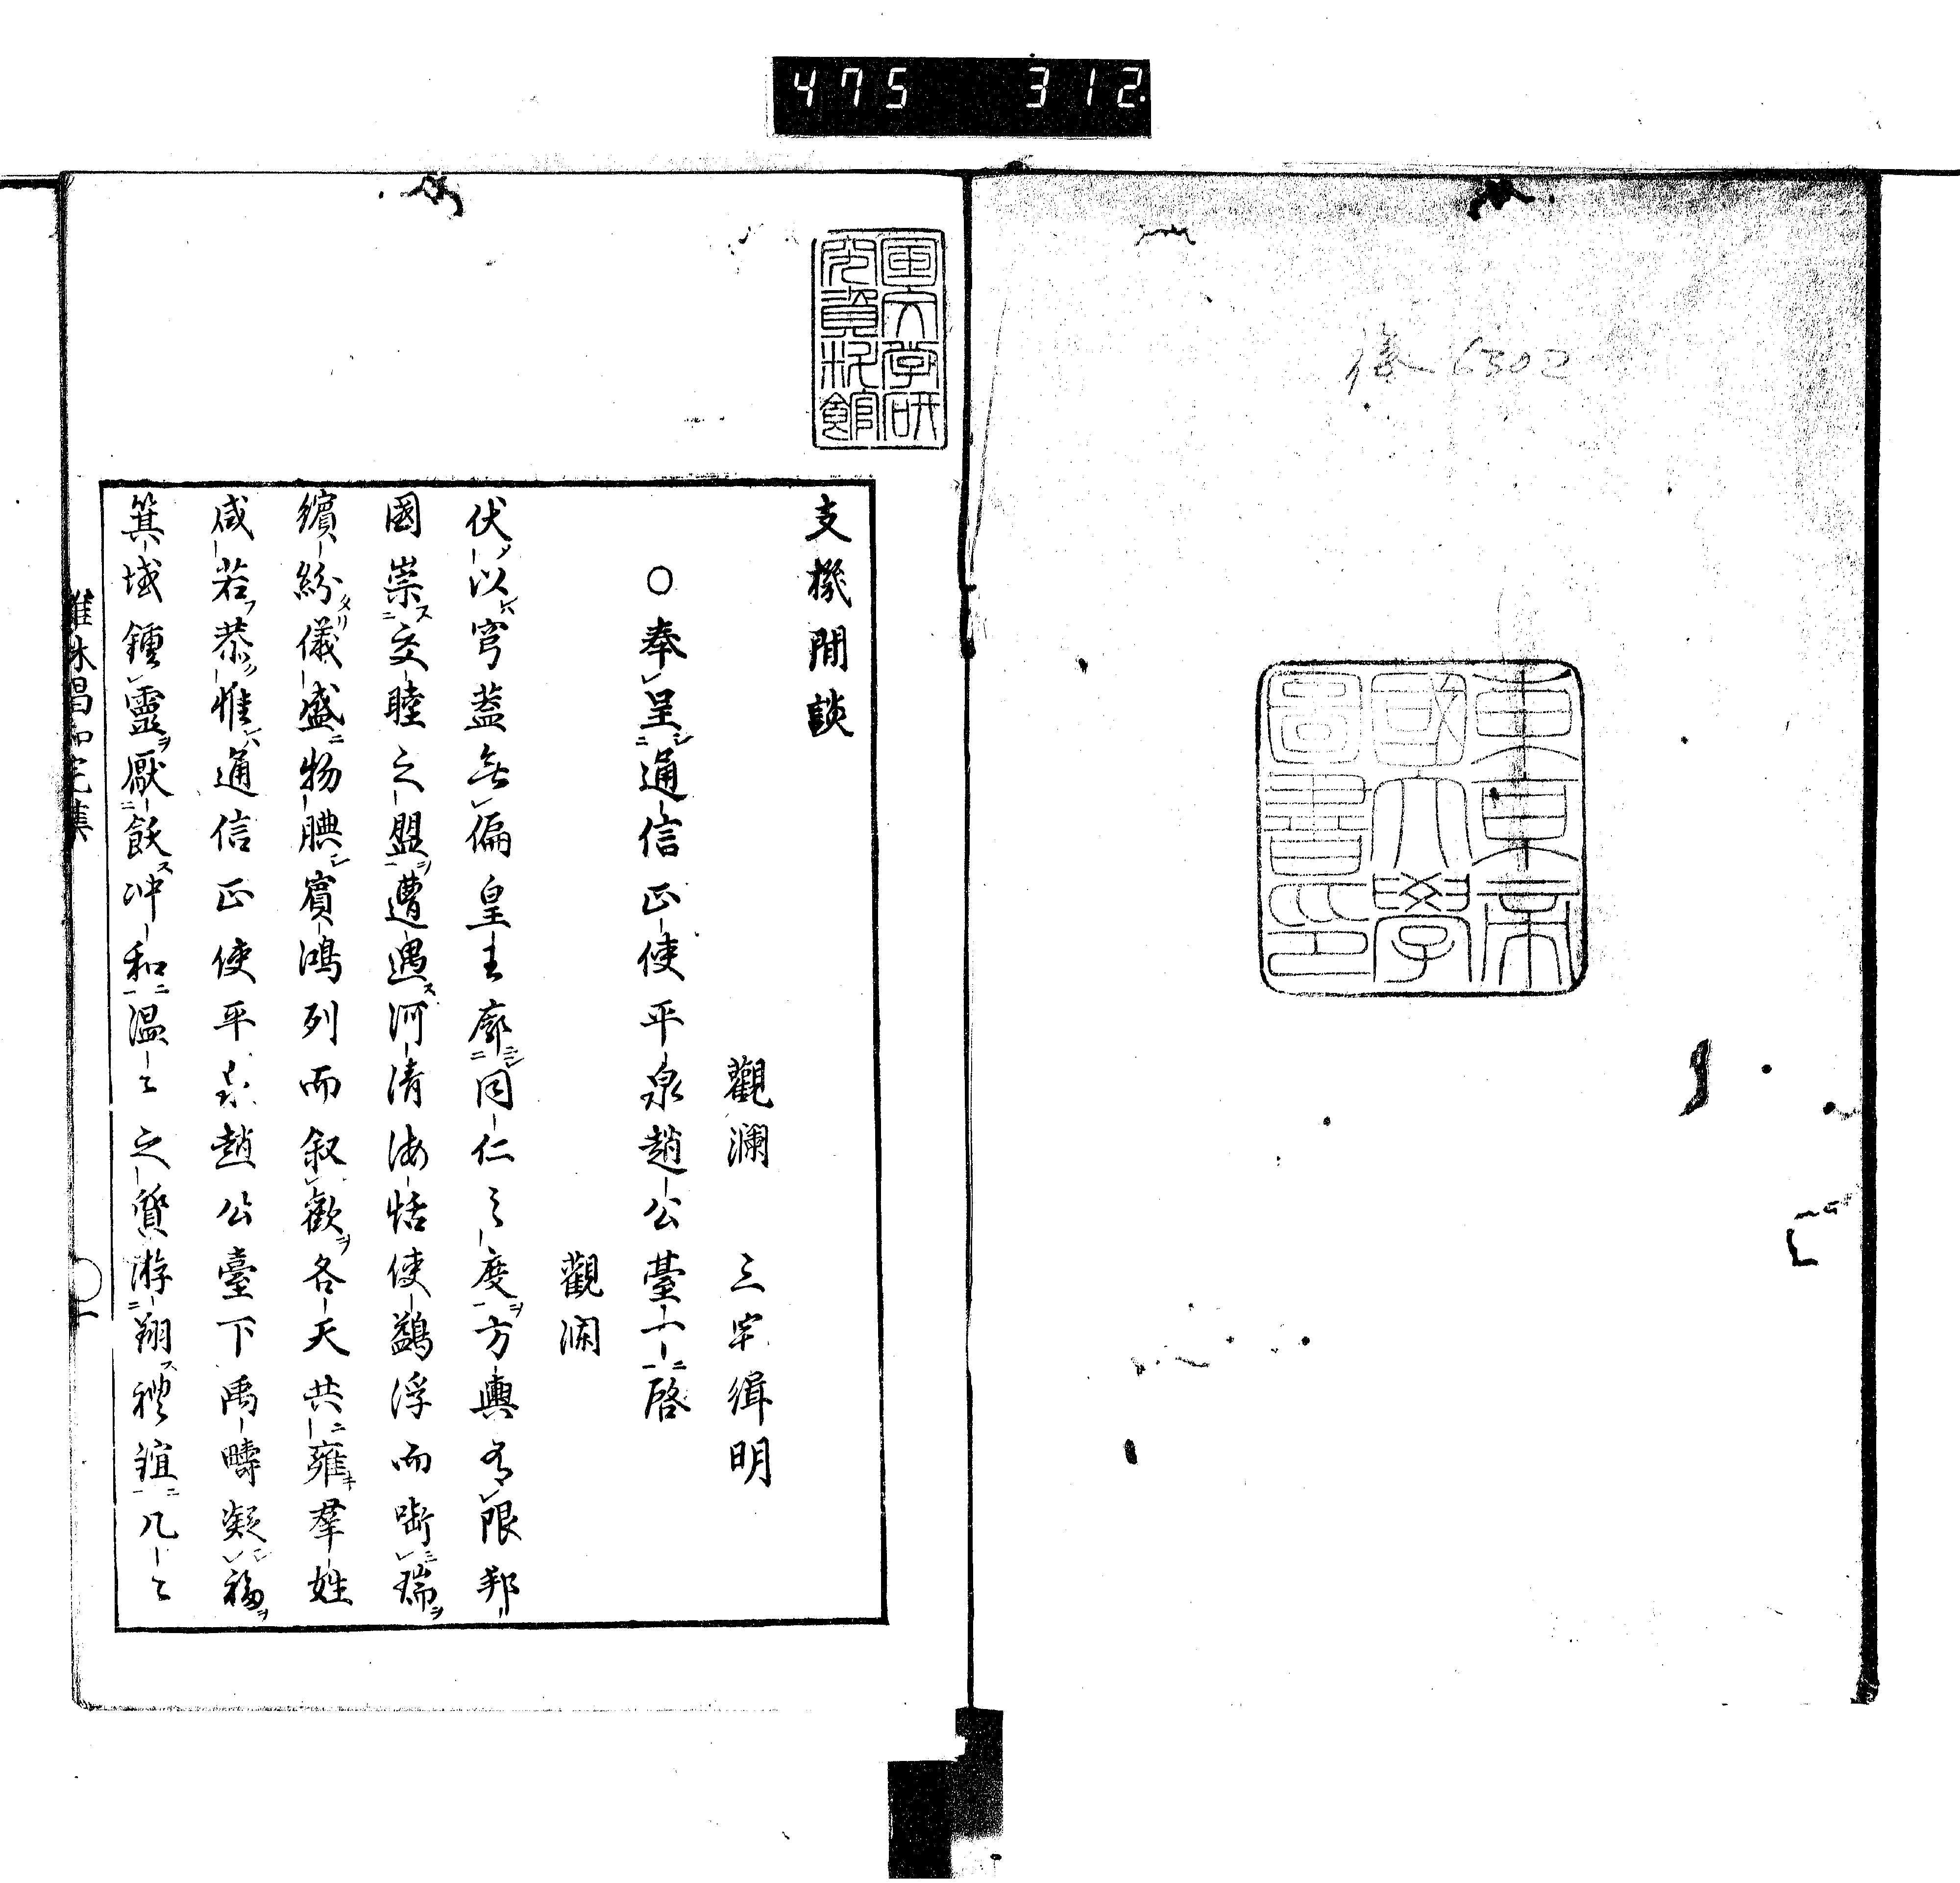 475 312
東京帝
國大學
圖書印
6302
國文学研
究資料館
支機閒談
觀瀾 三宅緝明
○奉呈通信正使平泉趙公臺下啓
觀瀾
伏以穹蓋無偏皇王廓同仁之度方輿有限邦
國崇交睦之盟遭遇河清海恬使鷁浮而啣瑞
繽紛儀盛物腆賓鴻列而叙歡各天共雍羣姓
咸若恭惟通信正使平泉趙公臺下禹疇凝福
箕域鍾靈厭飫冲和温々之質游翔禮誼几々